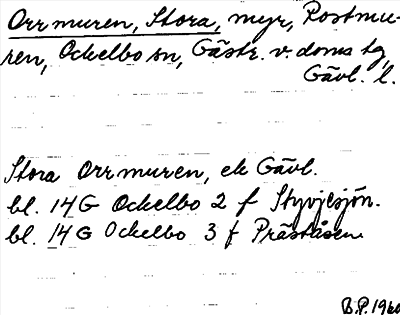 Orrmuren, Stora, myr, Rostmu-
ren, Ockelbo sn, Gästr. v. doms tg,
Gävl. l.
Stora Orrmuren, ek Gävl.
bl. 14 G Ockelbo 2 f Styvjesjön.
bl. 14 G Ockelbo 3 f Präståsen.
B.P. 1960